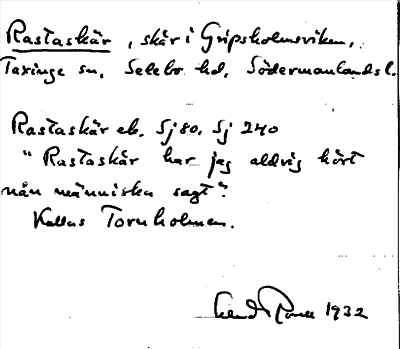 Rastaskär, skär i Gripsholmsviken,
Taxinge sn, Selebo hd, Södermanlands l.
Rastaskär ek. Sj 80. Sj 240
"Rastaskär har jag aldrig hört
nån människa sagt".
Kallas Tornholmen.
1932